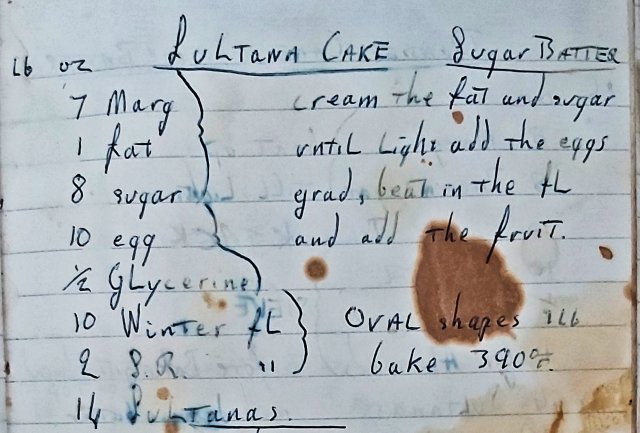 Sultana Cake Sugar Batter
Lb oz
7 Marg cream the fat and sugar
1 fat until light add the eggs
8 sugar grad, beat in the fL
10 egg and add the fruit.
1/2 Glycerine
10 Winter fL Oval shapes 1Lb
2 S.R. " bake 390°F.
14 Sultanas.